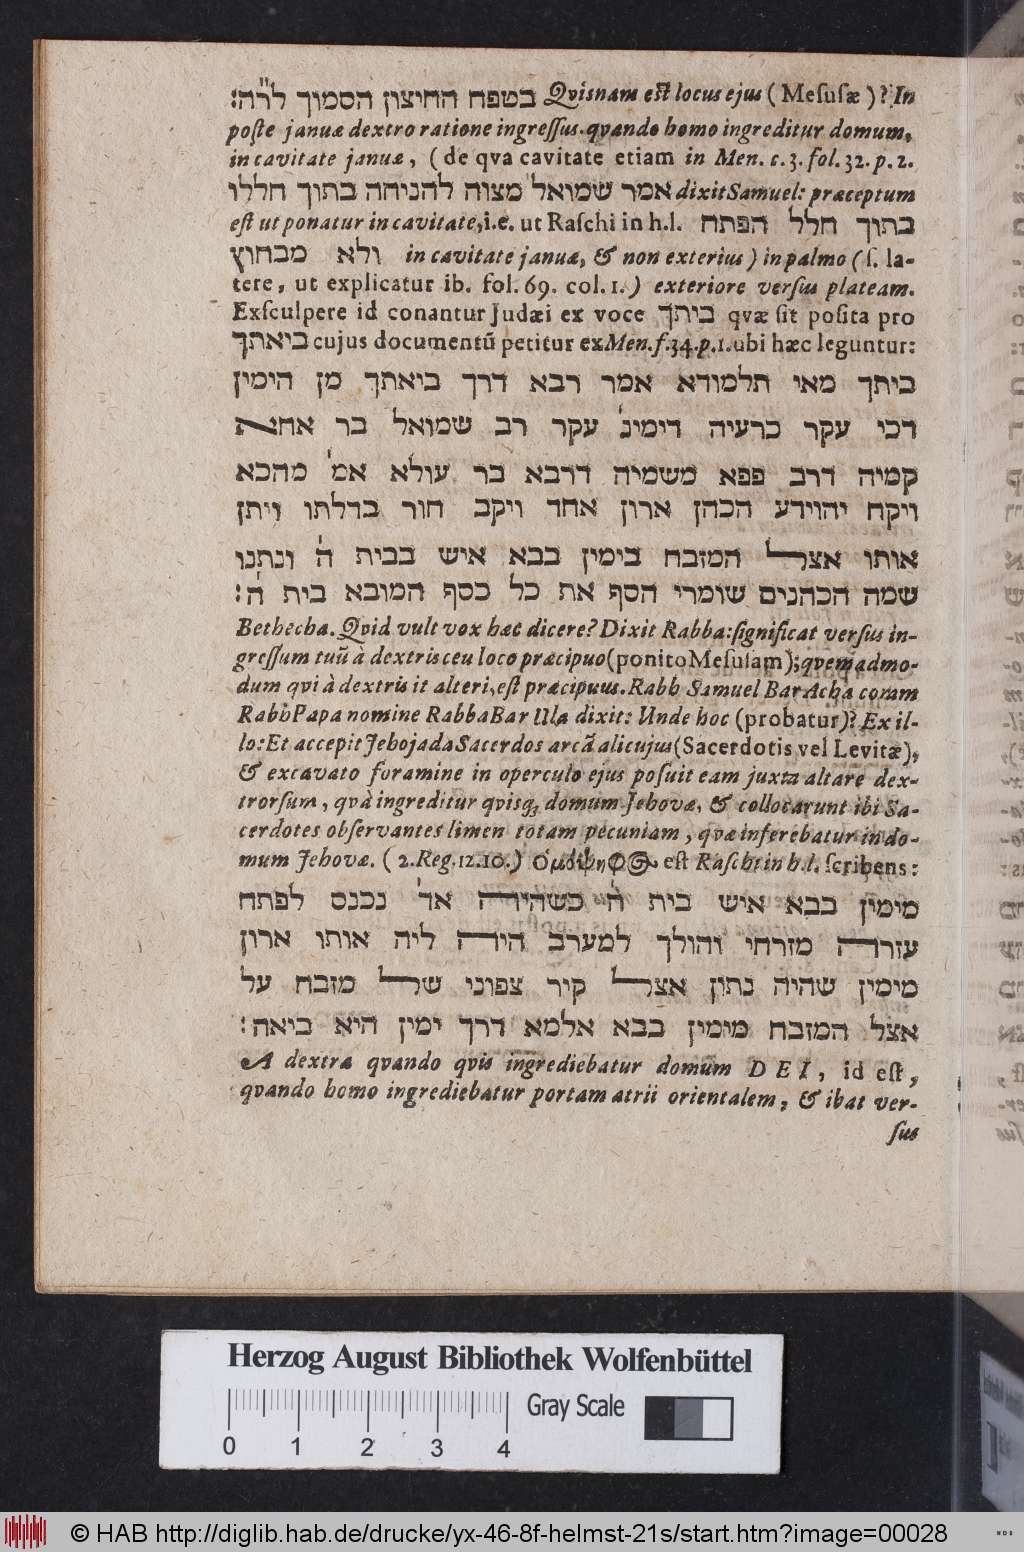 בטפח החיצון הסמוך לר״ה: Qvisnam est locus ejus (Mesusæ)? In
poste januæ dextro ratione ingressus. qvando homo ingreditur domum,
in cavitate januæ, (de qva cavitate etiam in Men. c. 3. fol. 32. p. 2.
אמר שמואל מצוה להניחה בתוך חללו dixit Samuel: præceptum
est ut ponatur in cavitate, i.e. ut Raschi in h.l. בתוך חלל הפתח
ולא מבחוץ in cavitate januæ, & non exterius) in palmo (s. la-
tere, ut explicatur ib. fol. 69. col. 1.) exteriore versus plateam.
Exsculpere id conantur Judæi ex voce ביתך qvæ sit posita pro
ביאתך cujus documentũ petitur ex Men. f. 34. p. 1. ubi hæc leguntur:
ביתך מאי תלמודא אמר רבא דרך ביאתך מן הימין
דכי עקר כרעיה דימינ׳ עקר רב שמואל בר אחא
קמיה דרב פפא משמיה דרבא בר עולא אמ׳ מהכא
ויקח יהוידע הכהן ארון אחד ויקב חור בדלתו ויתן
אותו אצל המזבח בימין בבא איש בבית ה׳ ונתנו
שמה הכהנים שומרי הסף את כל כסף המובא בית ה׳:
Bethecha. Qvid vult vox hæc dicere? Dixit Rabba: significat versus in-
gressum tuũ à dextris ceu loco præcipuo (ponito Mesusam); qvemadmo-
dum qvi à dextris it alteri, est præcipuus. Rabb Samuel Bar Acha coram
Rabb Papa nomine Rabba Bar Ulla dixit: Unde hoc (probatur)? Ex il-
lo: Et accepit Jehojada Sacerdos arcã alicujus (Sacerdotis vel Levitæ),
& excavato foramine in operculo ejus posuit eam juxta altare dex-
trorsum, qvà ingreditur qvisq; domum Jehovæ, & collocarunt ibi Sa-
cerdotes observantes limen totam pecuniam, qvæ inferebatur in do-
mum Jehovæ. (2. Reg. 12. 10.) ὁμόψηφος est Raschi in h.l. scribens:
מימין בבא איש בית ה׳ כשהיה אד׳ נכנס לפתח
עזרה מזרחי והולך למערב היה ליה אותו ארון
מימין שהיה נתון אצל קיר צפוני של מזבח על
אצל המזבח מימין בבא אלמא דרך ימין היא ביאה:
A dextra qvando qvis ingrediebatur domum DEI, id est,
qvando homo ingrediebatur portam atrii orientalem, & ibat ver-
sus
Herzog August Bibliothek Wolfenbüttel
Gray Scale
0 1 2 3 4
© HAB http://diglib.hab.de/drucke/yx-46-8f-helmst-21s/start.htm?image=00028